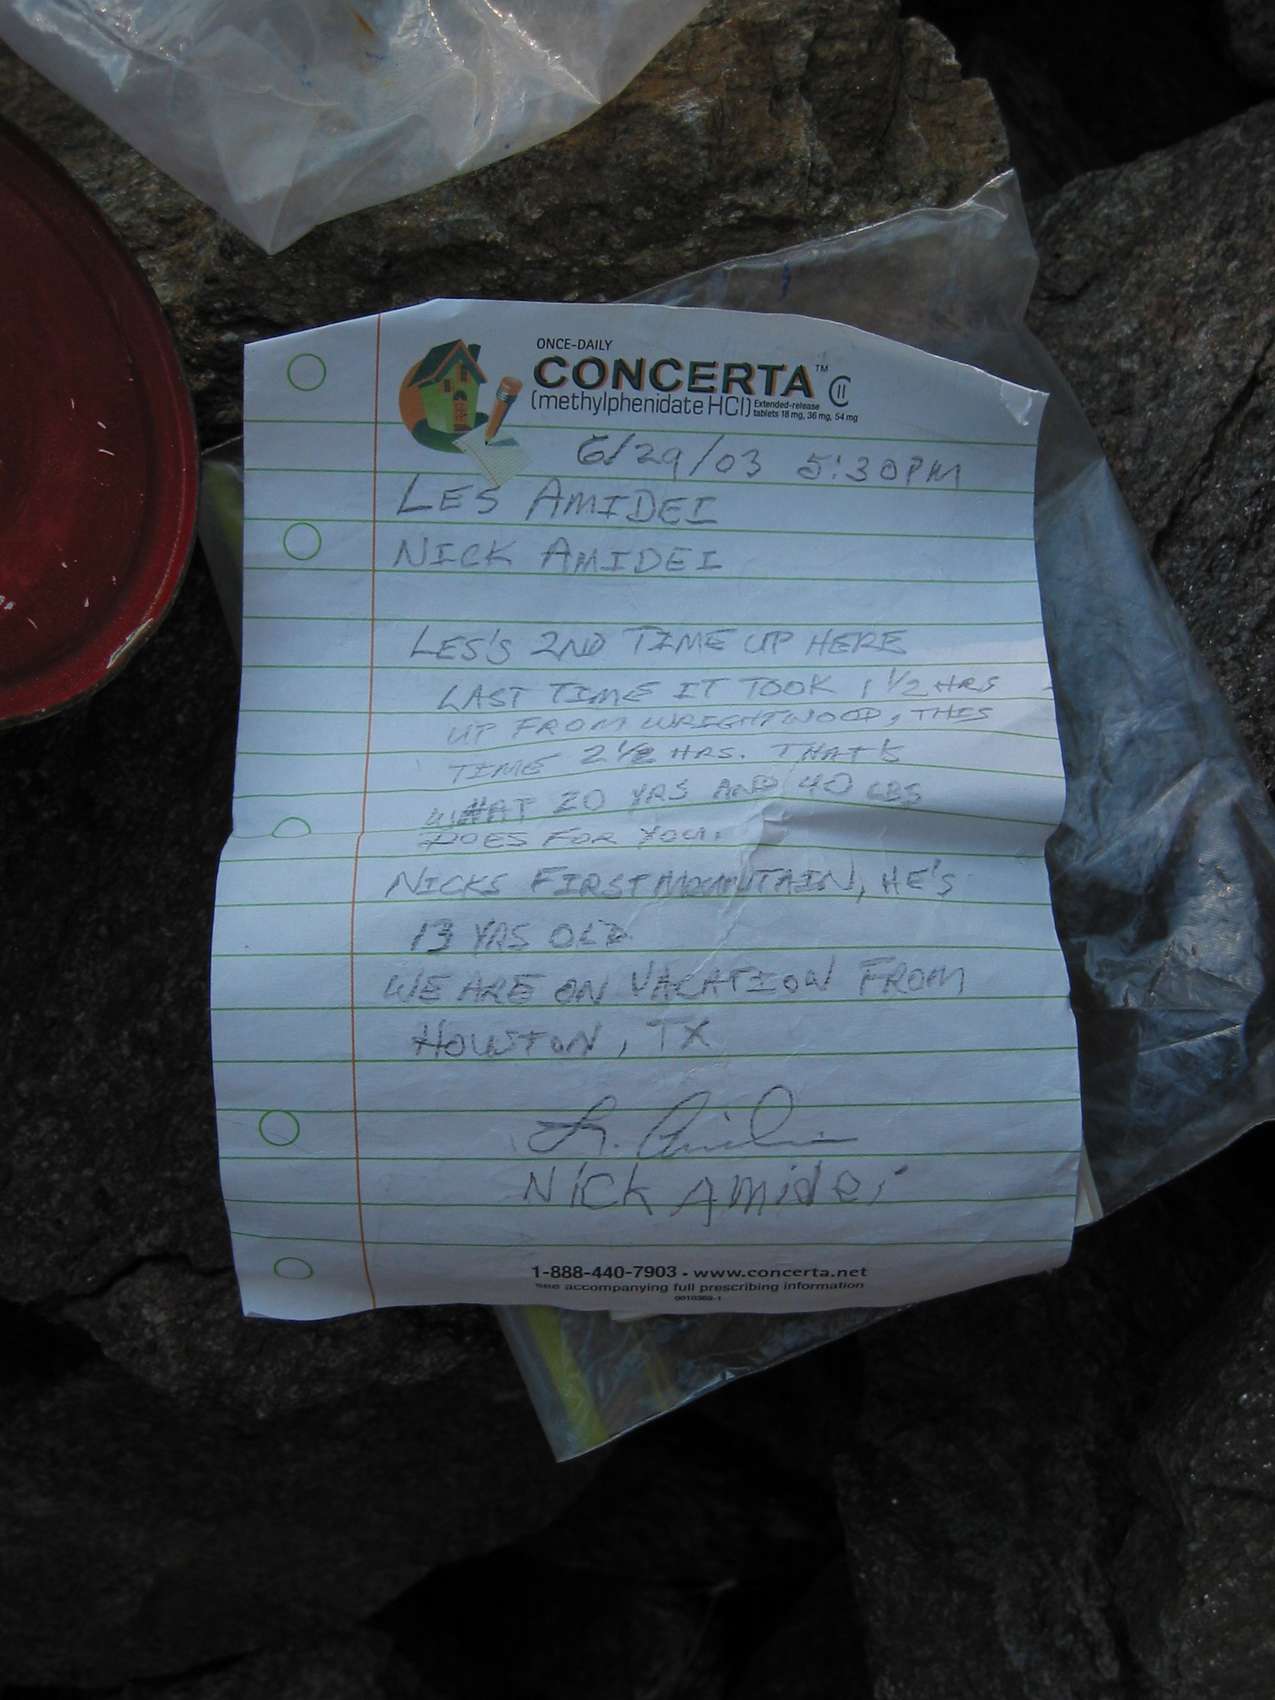 ONCE-DAILY
CONCERTA™ CII
(methylphenidate HCl) Extended-release
tablets 18 mg, 36 mg, 54 mg
6/29/03 5:30PM
LES AMIDEI
NICK AMIDEI
LES'S 2ND TIME UP HERE
LAST TIME IT TOOK 1 1/2 HRS
UP FROM WRIGHTWOOD, THIS
TIME 2 1/2 HRS. THAT'S
WHAT 20 YRS AND 40 LBS
DOES FOR YOU.
NICKS FIRST MOUNTAIN, HE'S
13 YRS OLD
WE ARE ON VACATION FROM
HOUSTON, TX
L. Amidei
Nick Amidei
1-888-440-7903 • www.concerta.net
see accompanying full prescribing information